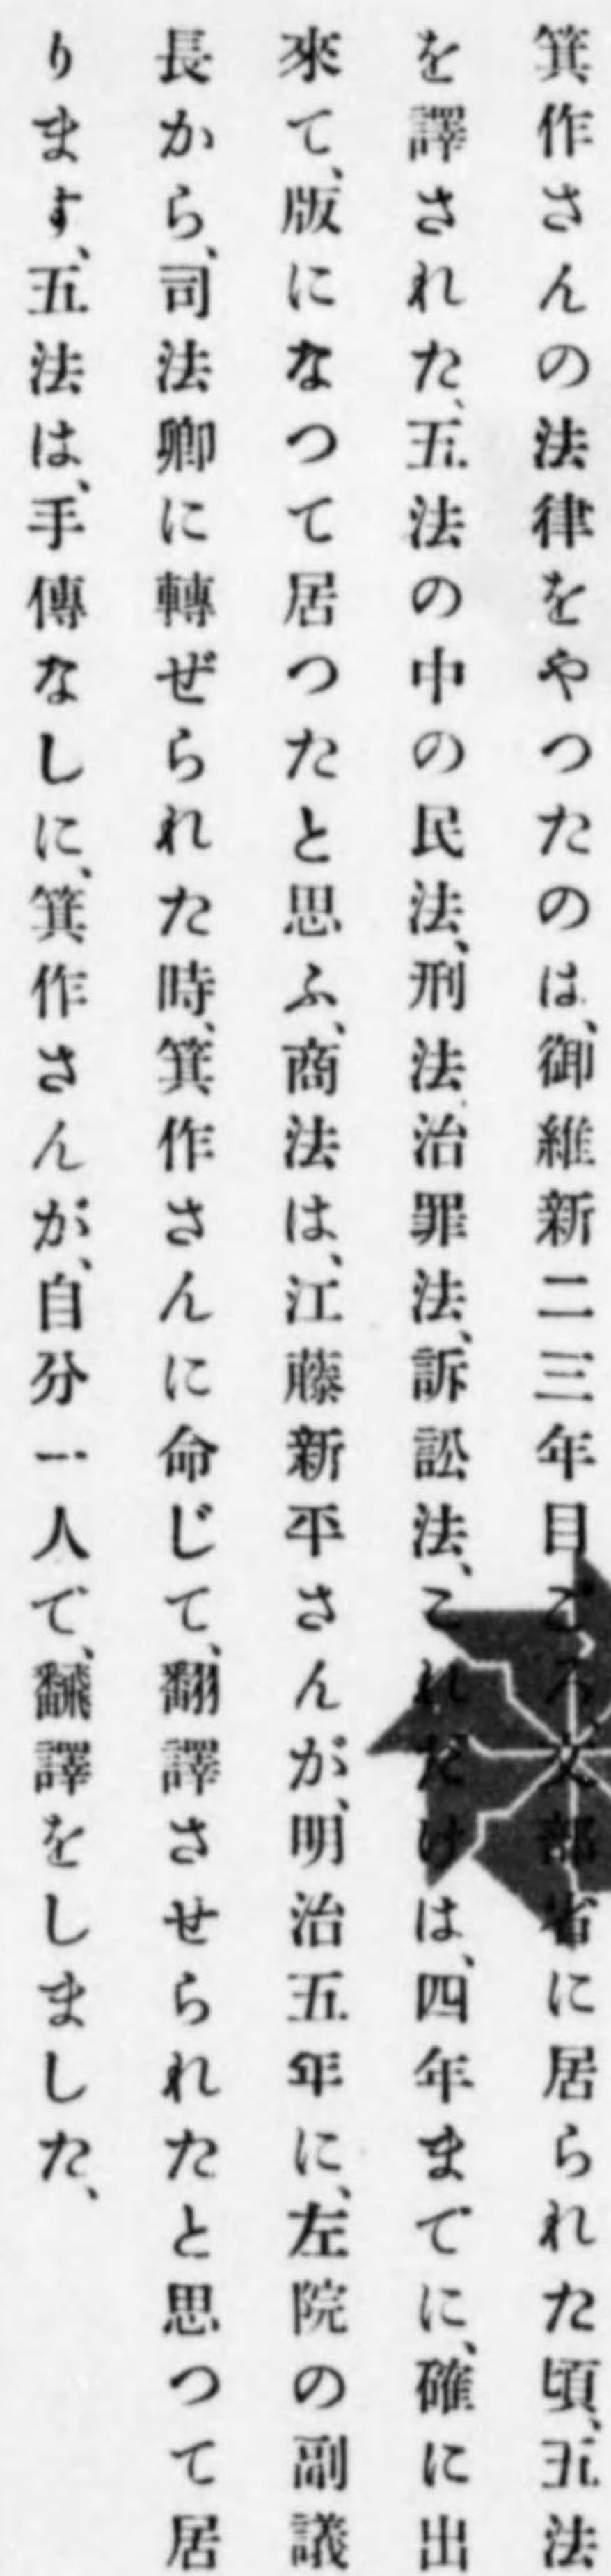 箕作さんの法律をやつたのは、御維新二三年目ごろ、文部省に居られた頃、五法
を譯された、五法の中の民法、刑法、治罪法、訴訟法、これだけは、四年までに、確に出
來て、版になつて居つたと思ふ、商法は、江藤新平さんが、明治五年に、左院の副議
長から、司法卿に轉ぜられた時、箕作さんに命じて、翻譯させられたと思つて居
ります、五法は、手傳なしに、箕作さんが、自分一人で、飜譯をしました、